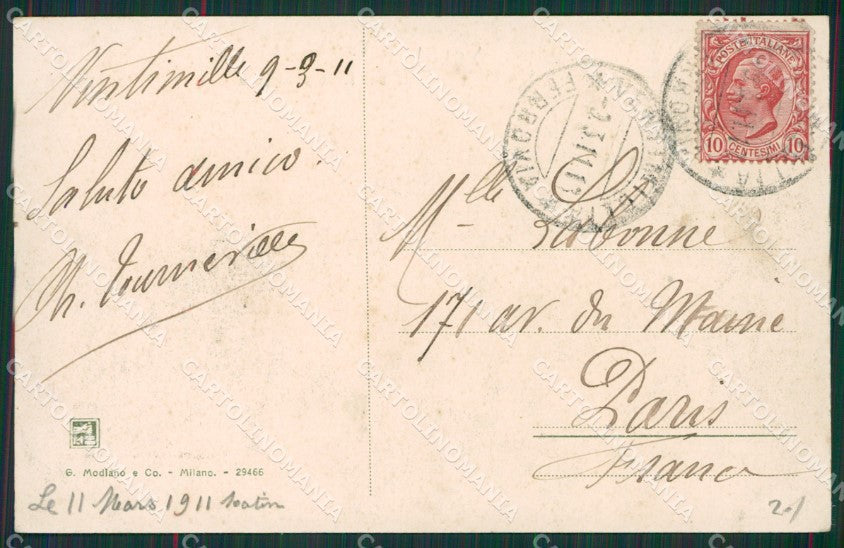 Vintimille 9-3-11
Saluto amico.
Th. Tournerille
G. Modiano e Co. - Milano. - 29466
Le 11 Mars 1911 matin
POSTE ITALIANE
10 CENTESIMI 10
VENTIMIGLIA
FERROVIA
Mlle Labonne
171 av. du Maine
Paris
France
2-/
CARTOLINOMANIA